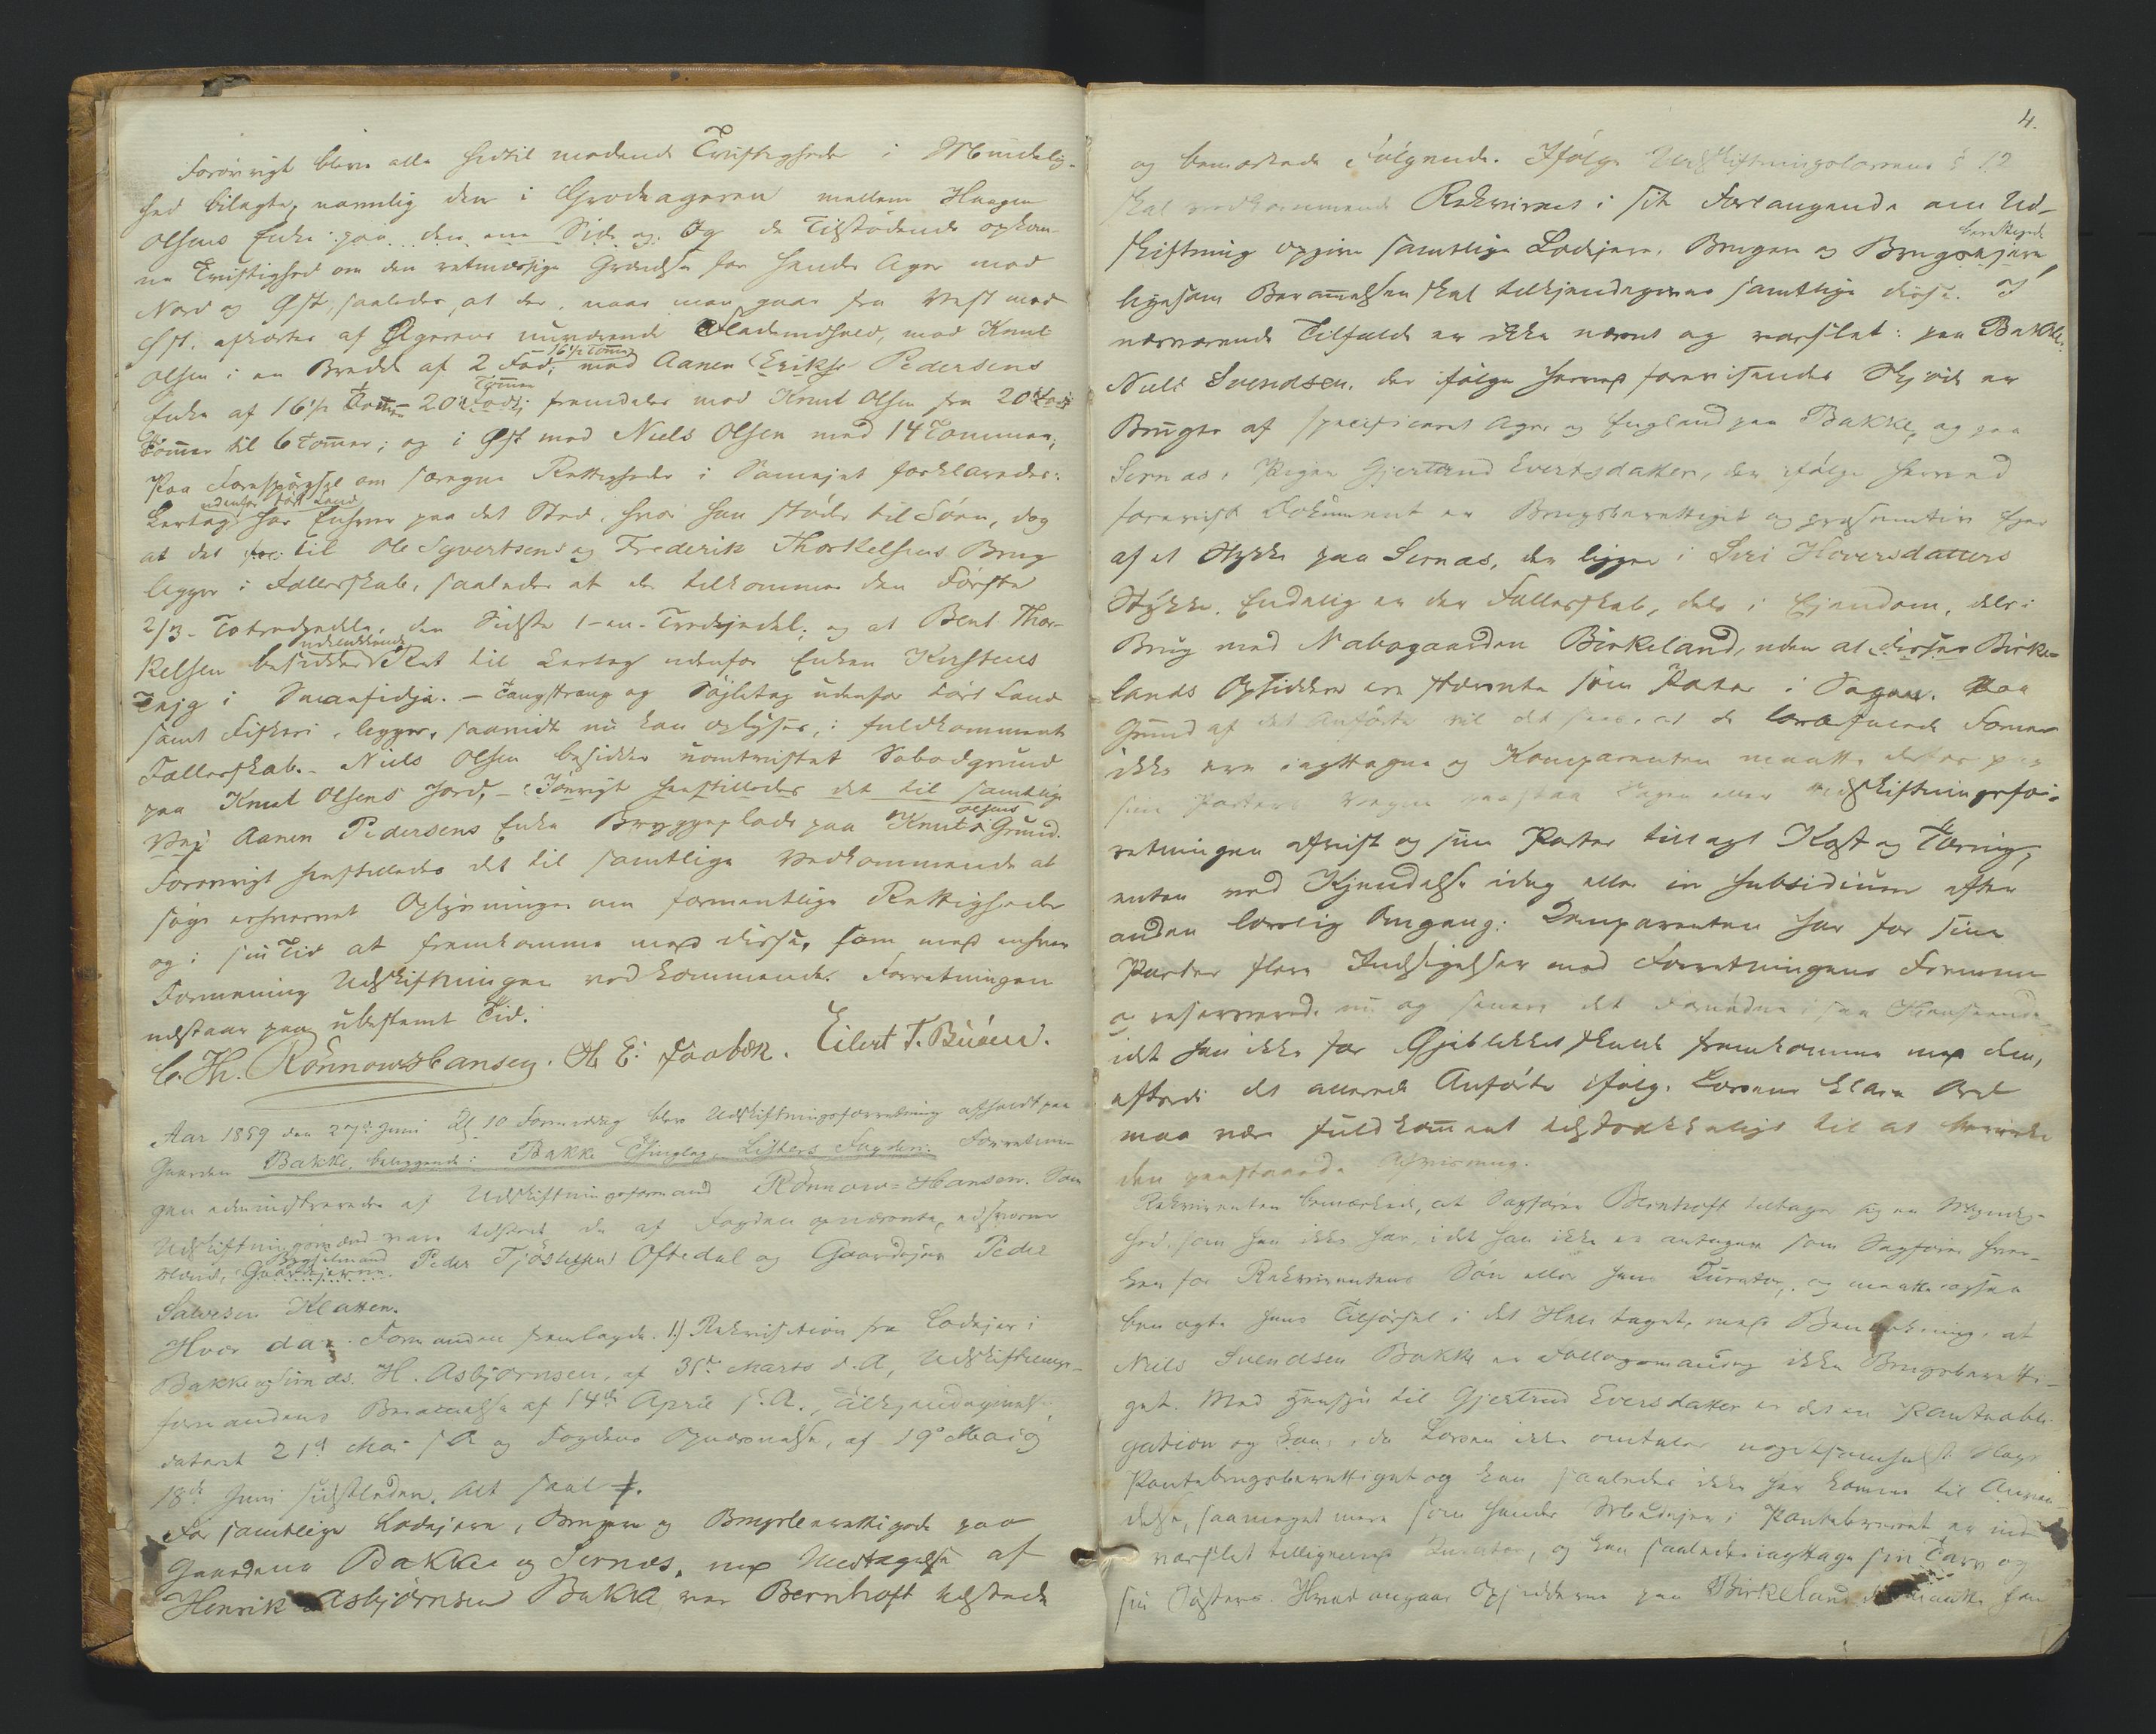 Forøvrigt bleve alle hidtil mødende Tvistigheder i Mindelig-
hed bilagte, navnlig den i Grodeageren mellem Haagen
Olsens Enke paa den ene Side og Og de Tilstødende opkom-
ne Tvistighed om den retmæssige Grændse for hendes Ager mod
Nord og Øst, saaledes, at der, naar man gaar fra Vest mod
Øst, afkortes af Agerens nuværende Flademdhold, mod Knut
Olsen i en Bredde af 2 Fod, 16½ Tommer mod Aanen Eriksø Pedersens
Enke af 16½ Tommer 20 Tommer fremdeles mod Knut Olsen fra 20
Tommer til 6 Tommer; og i Øst mod Niels Olsen med 14 Tommer.
Paa Forespørgsel om særegne Rettigheder i Sameiet forklaredes:
Lertag udenfor tørt Land har Enhver paa det Sted, hvor han støder til Søen, dog
at det til Ole Syvertsens og Frederik Thorkelsens Brug
ligger i Fællesskab, saaledes at der tilkommer den Første
2/3 - Totredjedele, den Sidste 1 - en - Tredjedel; og at Bent Thor-
kelsen besidder udelukkende Ret til Lertag udenfor Enken Kirstens
Teig i Smaafidja. - Tangskrap og Søjletag udenfor tørt Land
samt Fiskeri, ligger, saavidt nu kan oplyses, i fuldkomment
Fællesskab. - Niels Olsen besidder uomtvistet Søbodgrund
paa Knut Olsens Jord, - Iøvrigt henstilledes det til samtlige
Ved Aanen Pedersens Enke Bryggeplads paa Knut Olsens Grund.
Forøvrigt henstilledes det til samtlige Vedkommende at
søge erhvervet Oplysninger om formentlige Rettigheder
og i sin Tid at fremkomme med disse, som med enhver
Formening Udskiftningen vedkommende. Forretningen
udstaar paa ubestemt Tid.
C. Th. Rønnow Hansen. H E: Faabek. Eilert T. Buøen.
Aar 1859 den 27de Juni Kl. 10 Formiddag blev Udskiftningsforretning afholdt paa
Gaarden Bakke, beliggende i Bakke Thinglag Listers Fogderi. Forretnin-
gen administreredes af Udskiftningsformand Rönnow-Hansen. Som
Udskiftningsmænd vare tilstede de af Fogden opnævnte, edsvorne
Mænd, Gaardejerne Bygselmand Peder Tjøstelsen Oftedal og Gaardejer Peder
Salvesen Klatten.
Hvor da: Formanden fremlagde 1) Rekvisition fra Lodejer i
Bakke og Sirnæs H. Asbjørnsen, af 31te Marts d. A, Udskiftnings-
formandens Berammelse af 14de April s. A., Tilkjendegivelse
dateret 21de Mai s. A og Fogdens Opnævnelse, af 19de Mai og
18de Juni sidstleden. Alt saal. ɟ.
For samtlige Lodejere, Brugere og Brugsberettigede paa
Gaardene Bakke og Sirnæs, med Undtagelse af
Henrik Asbjørnsen Bakke var Bernhoft tilstede
4.
og bemærkede Følgende. Ifølge Udskiftningslovens § 12
skal vedkommende Rekvirent i sit Forlangende om Ud-
skiftning opgive samtlige Lodejere, Brugere og Brugsberettigede
ligesom Berammelsen skal tilkjendegives samtlige disse. I
nærværende Tilfælde er ikke nævnt og varslet: paa Bakke:
Niels Svendsen, der ifølge herved forevisende Skjøde er
Bruger af specificeret Ager og England paa Bakke, og paa
Sirnæs, Pigen Gjertrud Evertsdatter, der ifølge herved
forevist Dokument er Brugsberettiget og præsumtiv Ejer
af et Stykke paa Sirnæs, der ligger i Siri Haaversdatters
Stykke. Endelig er der Fællesskab, dels i Ejendom, dels i
Brug med Nabogaarden Birkeland, uden at disse Birke-
lands Opsiddere ere stævnte som Parter i Sagen. Paa
Grund af det Anførte vil det sees, at de lovbefalede Former
ikke ere iagttagne og Komparenten maatte derfor paa
sine Parters Vegne paastaa Sagen eller Udskiftningsfor-
retningen afvist og sine Parter tillagt Kost og Tæring,
enten ved Kjendelse idag eller in subsidium efter
anden lovlig Omgang. Komparenten har for sine
Parter flere Indsigelser mod Forretningens Fremme
og reserverede nu og senere det Fornødne i saa Henseende
idet han ikke for Øjeblikket skulde fremkomme med dem,
efterdi det allerede Anførte ifølge Lovens klare Ord
maa være fuldkomment tilstrækkeligt til at bevirke
den paastaaede Afvisning.
Rekvirenten bemærkede, at Sagfører Bernhoft tiltager sig en Myndig-
hed, som han ikke har, idet han ikke er antagen som Sagfører hver-
ken for Rekvirentens Søn eller hans Kurator, og maatte ogsaa
benegte hans Tilførsel i det Hele taget, med Bemærkning, at
Niels Svendsen Bakke er Føllogsmand og ikke Brugsberetti-
get. Med Hensyn til Gjertrud Eversdatter er det en Panteobli-
gation og kan, da Loven ikke omtaler nogetsomhelst Slags
Pantebrugsberettiget og kan saaledes ikke her komme til Anven-
delse, saameget mere som hendes Medejer i Pantebrevet er ind-
varslet tilligemed Kurator, og kan saaledes iagttage sin Tarv og
sin Søsters. Hvad angaar Opsidderne paa Birkeland da maatte han